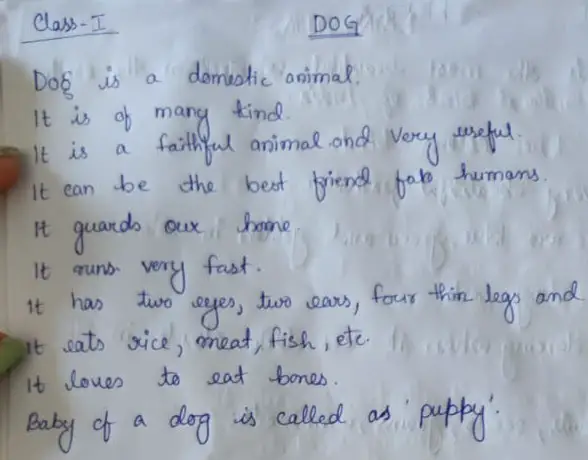 Class-I DOG
Dog is a domestic animal.
It is of many kind.
It is a faithful animal and very useful.
It can be the best friend for humans.
It guards our home.
It runs very fast.
It has two eyes, two ears, four thin legs and
It eats rice, meat, fish, etc.
It loves to eat bones.
Baby of a dog is called as 'puppy'.